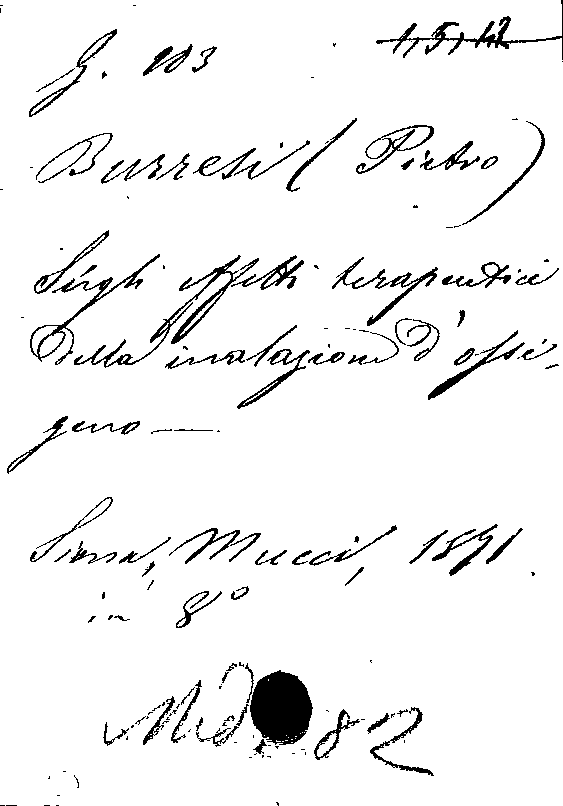 G. 103
1,5,42
Burresi (Pietro)
Sugli effetti terapeutici
della inalazione d'ossi-
geno —
Siena, Mucci, 1871.
in 8°
Med. 82